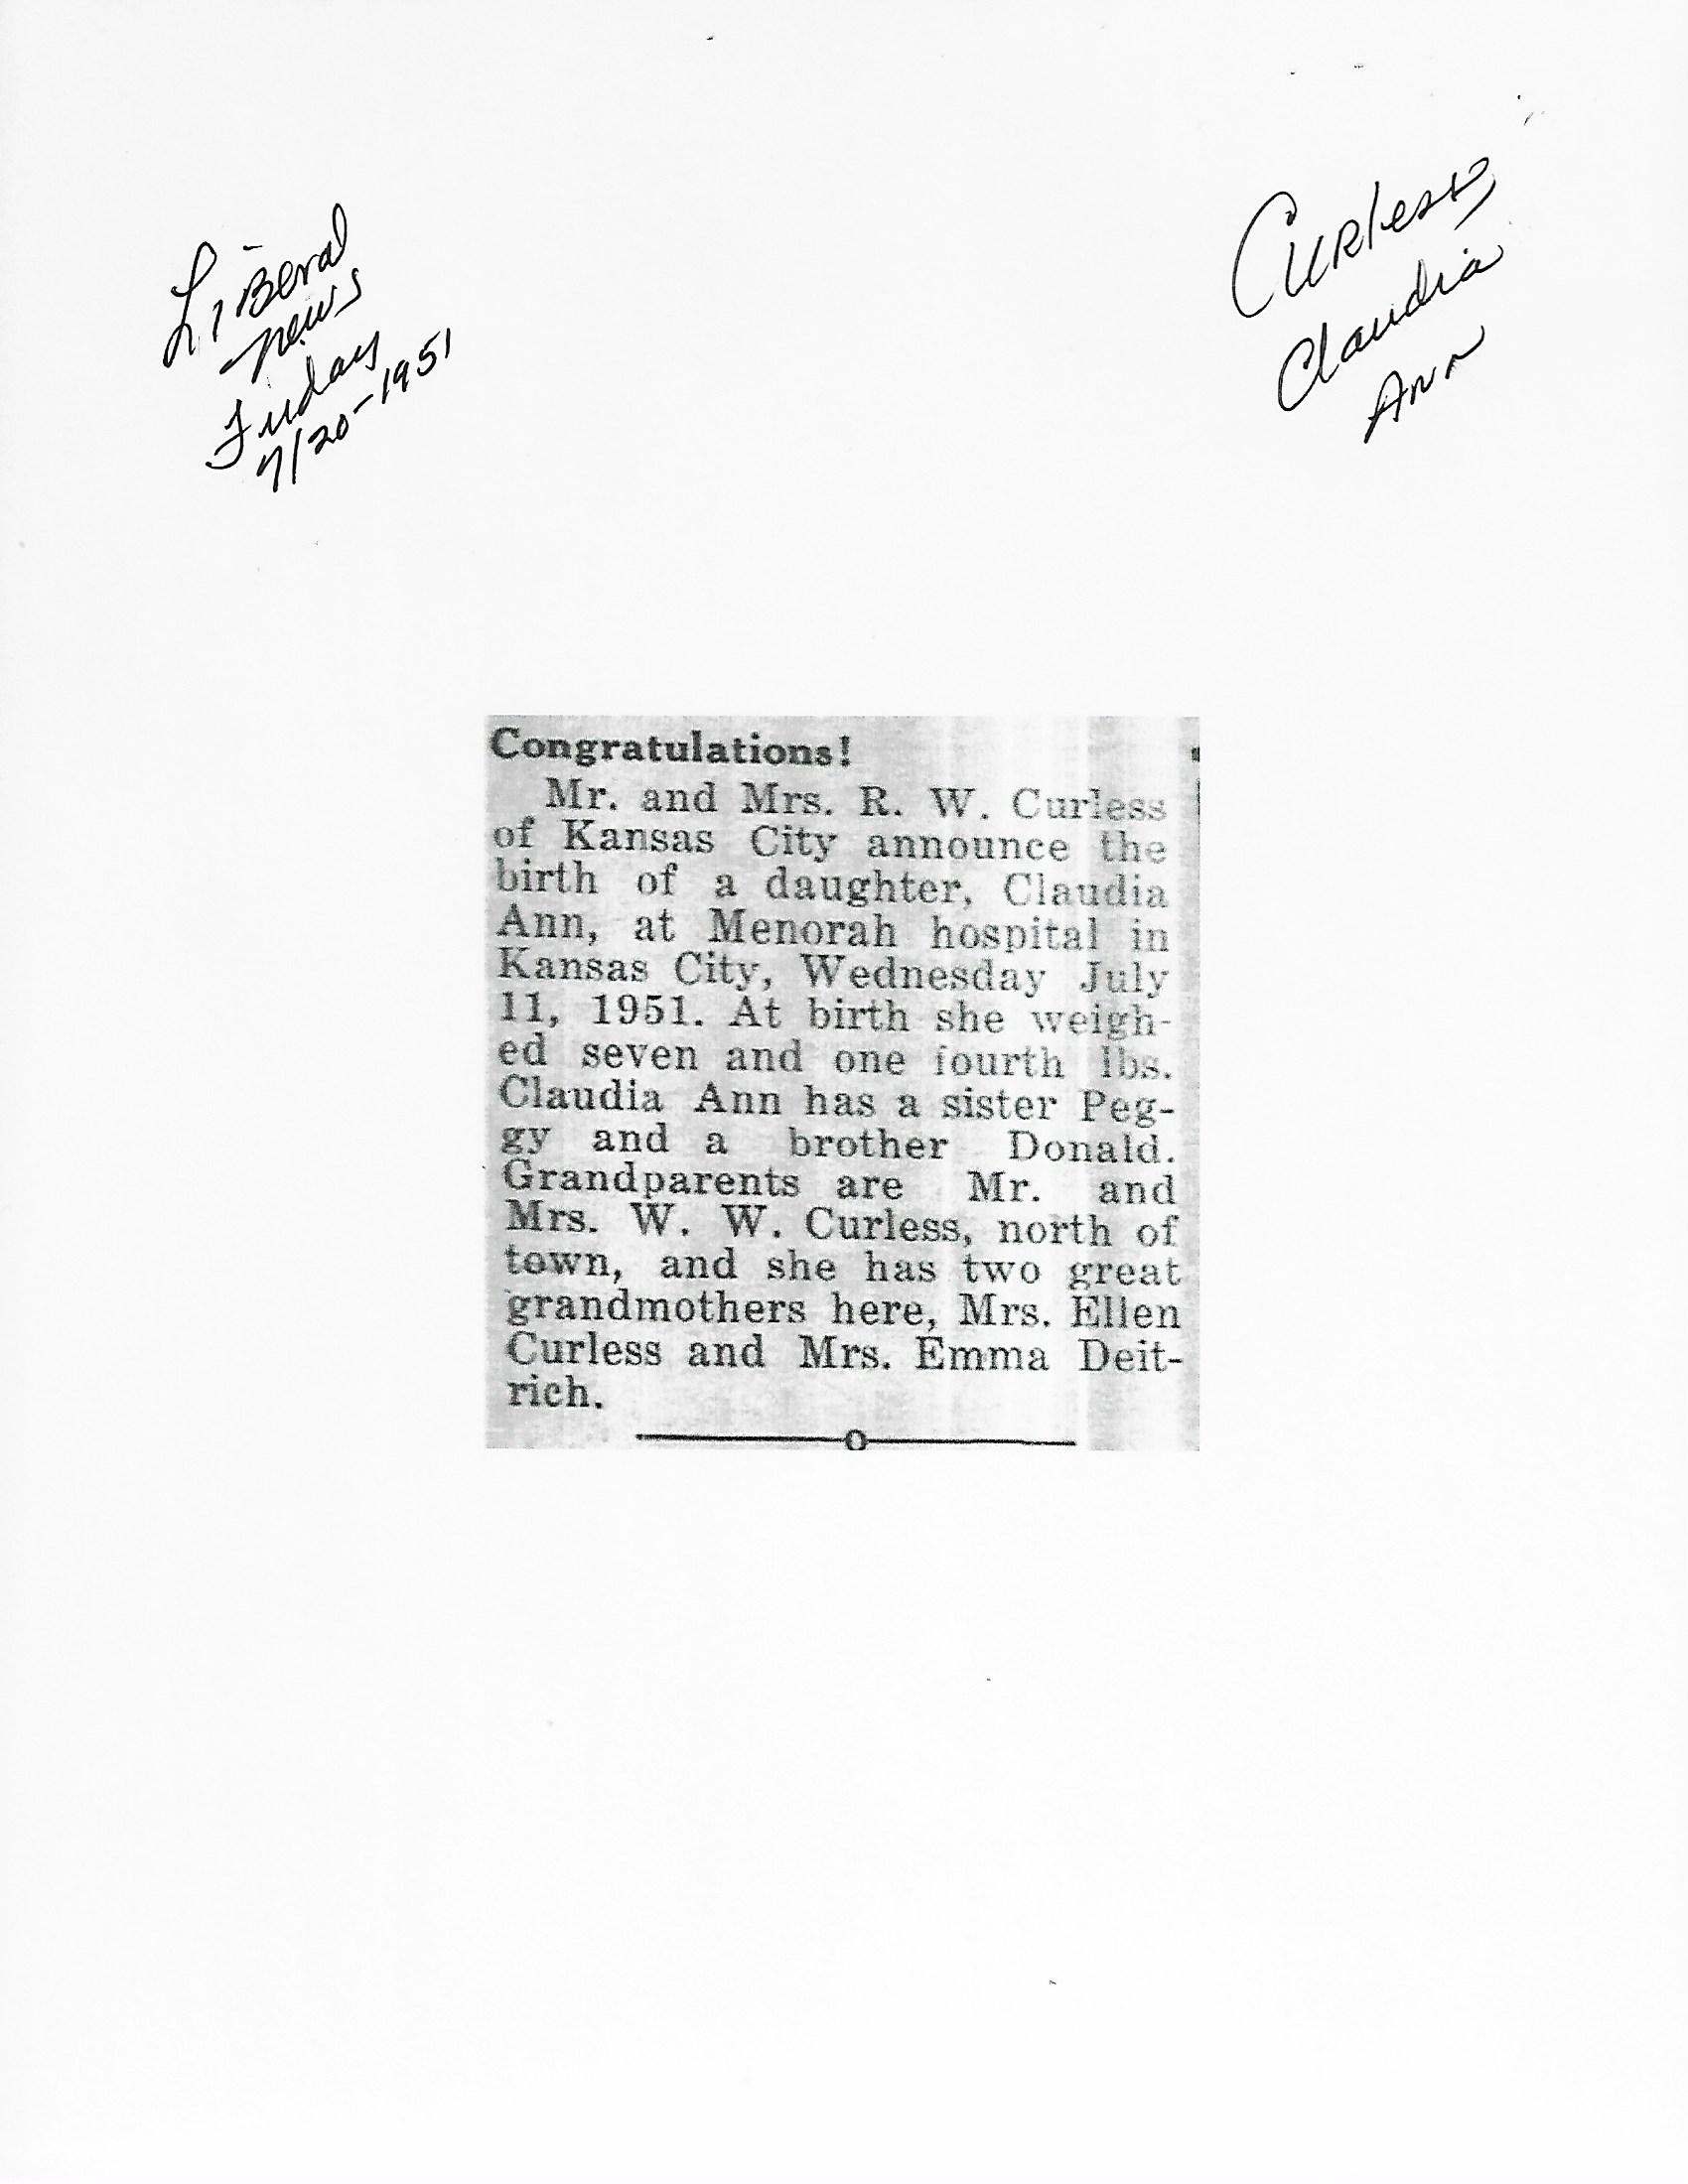 LiBeral
news
Friday
7/20-1951
Curless
Claudia
Ann
Congratulations!
Mr. and Mrs. R. W. Curless
of Kansas City announce the
birth of a daughter, Claudia
Ann, at Menorah hospital in
Kansas City, Wednesday July
11, 1951. At birth she weigh-
ed seven and one fourth lbs.
Claudia Ann has a sister Peg-
gy and a brother Donald.
Grandparents are Mr. and
Mrs. W. W. Curless, north of
town, and she has two great
grandmothers here, Mrs. Ellen
Curless and Mrs. Emma Deit-
rich.